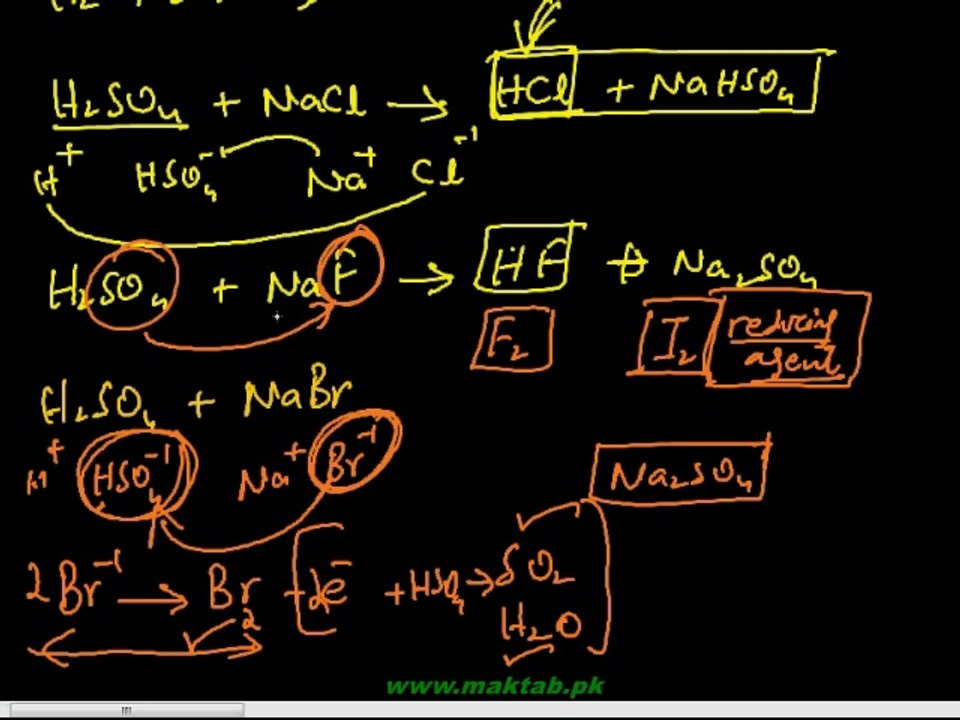 H₂SO₄ + NaCl → HCl + NaHSO₄
H⁺ HSO₄⁻ Na⁺ Cl⁻¹
H₂SO₄ + NaF → HF + Na₂SO₄
F₂ I₂ reducing agent
H₂SO₄ + NaBr
H⁺ HSO₄⁻¹ Na⁺ Br⁻¹
Na₂SO₄
2Br⁻¹ → Br₂ + 2e⁻ + HSO₄ → SO₂
H₂O
www.maktab.pk